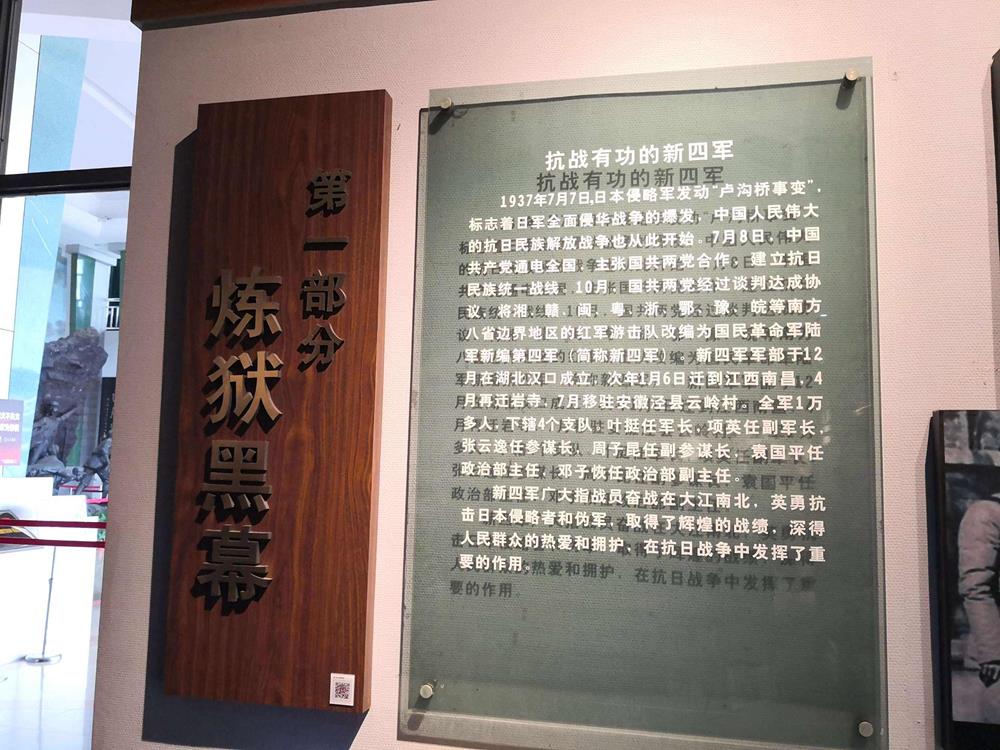 第一部分
炼狱黑幕
抗战有功的新四军
1937年7月7日,日本侵略军发动“卢沟桥事变”,
标志着日军全面侵华战争的爆发,中国人民伟大
的抗日民族解放战争也从此开始。7月8日,中国
共产党通电全国,主张国共两党合作,建立抗日
民族统一战线。10月,国共两党经过谈判达成协
议,将湘、赣、闽、粤、浙、鄂、豫、皖等南方
八省边界地区的红军游击队改编为国民革命军陆
军新编第四军(简称新四军)。新四军军部于12
月在湖北汉口成立,次年1月6日迁到江西南昌,4
月再迁岩寺,7月移驻安徽泾县云岭村。全军1万
多人,下辖4个支队,叶挺任军长,项英任副军长,
张云逸任参谋长,周子昆任副参谋长,袁国平任
政治部主任,邓子恢任政治部副主任。
新四军广大指战员奋战在大江南北,英勇抗
击日本侵略者和伪军,取得了辉煌的战绩,深得
人民群众的热爱和拥护,在抗日战争中发挥了重
要的作用。